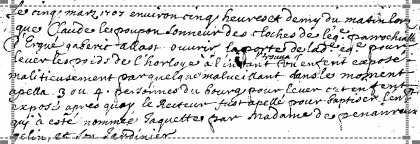 le cinq. mars 1707 environ cinq heures et demy du matin lors
que Claude le poupon sonneur des cloches de leg. parrochialle
d'Ergué gaberic allast ouvrir la porte de lad. eg. pour
lever les poids de l'horloge à l'instant trouva un enfent exposé
malitieusement par quelque malveuillant dans le moment
apella 3 ou 4 personnes du bourg pour lever cet enfent
exposé apres quoy le Recteur fust apellé pour baptiser l'enf
qu'a esté nommée Jaquette par Madame de penanrun
gelin, et son jardinier